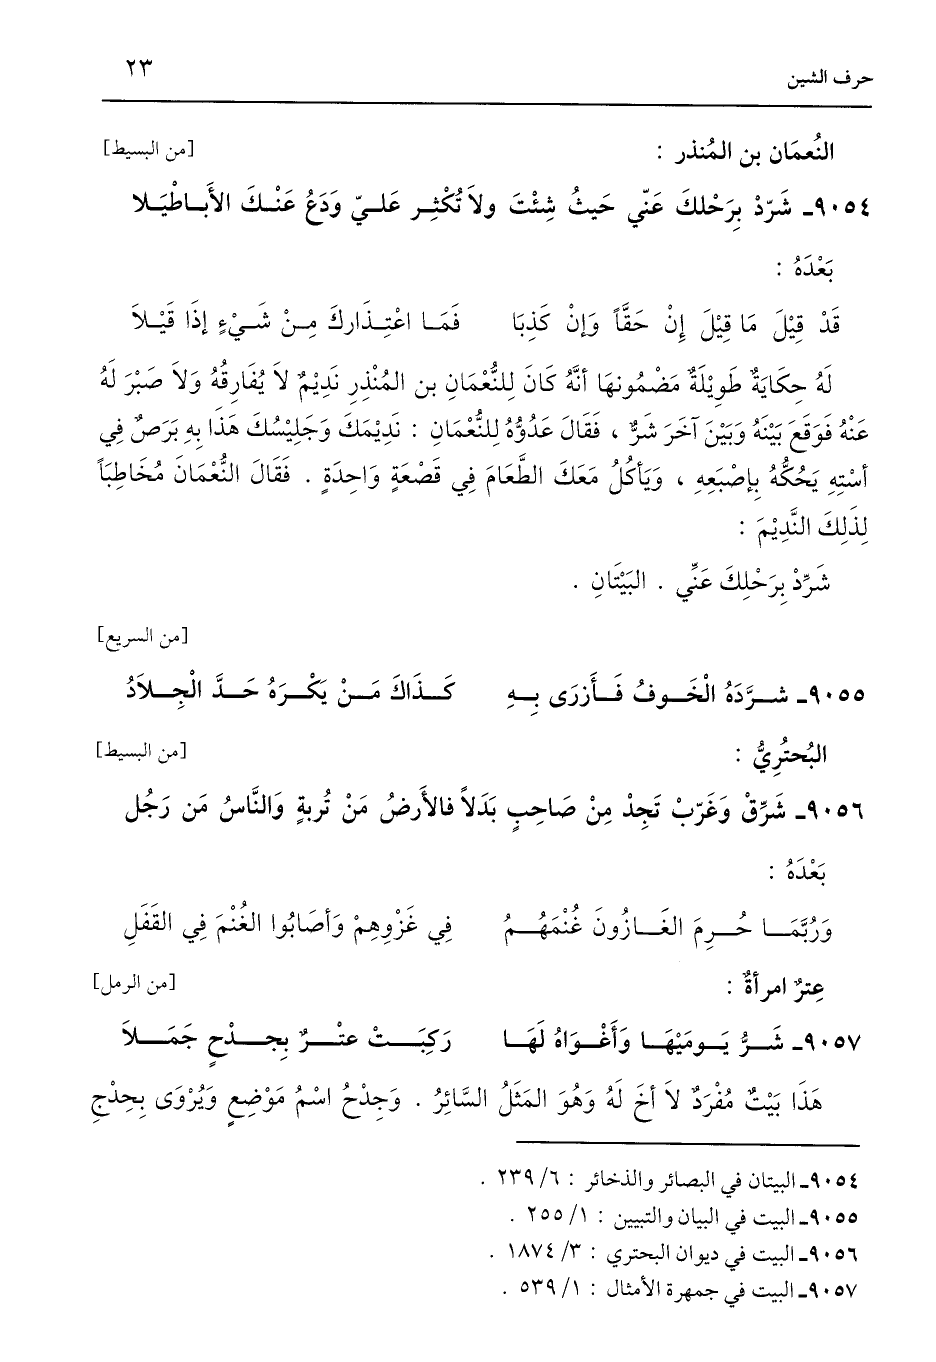 حرف الشين ٢٣
النُعمَان بن المُنذر : [من البسيط]
٩٠٥٤ـ شَرّدْ بِرَحْلكَ عَنّي حَيثُ شِئْتَ ولاَ تُكْثِر عَليّ وَدَعُ عَنْكَ الأَباطْيَلا
بَعْدَهُ :
قَدْ قِيْلَ مَا قِيْلَ إِنْ حَقَّاً وَإنْ كَذِبَا فَمَا اعْتِذَاركَ مِنْ شَيْءٍ إذَا قَيْلاَ
لَهُ حِكَايَةٌ طَوِيْلَةٌ مَضْمُونهَا أنَّهُ كَانَ لِلنُّعْمَانِ بن المُنْذِرِ نَدِيْمٌ لاَ يُفَارِقُهُ وَلاَ صَبْرَ لَهُ
عَنْهُ فَوَقَعَ بَيْنَهُ وَبَيْنَ آخَرَ شَرٌّ ، فَقَالَ عَدُوُّهُ لِلنُّعْمَانِ : نَدِيْمَكَ وَجَلِيْسُكَ هَذَا بِهِ بَرَصٌ فِي
أسْتِهِ يَحُكُّهُ بِإصْبَعِهِ ، وَيَأكُلُ مَعَكَ الطَّعَامَ فِي قَصْعَةٍ وَاحِدَةٍ . فَقَالَ النُّعْمَانَ مُخَاطِبَاً
لِذَلِكَ النَّدِيْمَ :
شَرِّدْ بِرَحْلِكَ عَنِّي . البَيْتَانِ .
[من السريع]
٩٠٥٥ـ شرَّدَهُ الْخَوفُ فَأَزرَى بِهِ كَذَاكَ مَنْ يَكْرَهُ حَدَّ الْجِلاَدُ
البُحتُرِيُّ : [من البسيط]
٩٠٥٦ـ شَرِّقْ وَغَرّبْ تَجِدْ مِنْ صَاحِبٍ بَدَلاً فالأَرضُ مَنْ تُربةٍ وَالنَّاسُ مَن رَجُل
بَعْدَهُ :
وَرُبَّمَا حُرِمَ الغَازُونَ غُنْمَهُمُ فِي غَزْوِهِمْ وَأصَابُوا الغُنْمَ فِي القَفَلِ
عِترٌ امرأةٌ : [من الرمل]
٩٠٥٧ـ شَرُّ يَومَيْهَا وَأَغْوَاهُ لَهَا رَكِبَتْ عنْرٌ بِجدْحٍ جَمَلاَ
هَذَا بَيْتٌ مُفْرَدٌ لاَ أخَ لَهُ وَهُوَ المَثَلُ السَّائِرُ . وَجِدْحُ اسْمُ مَوْضِعٍ وَيُرْوَى بِحِدْجِ
٩٠٥٤ـ البيتان في البصائر والذخائر : ٦/ ٢٣٩ .
٩٠٥٥ـ البيت في البيان والتبيين : ١/ ٢٥٥ .
٩٠٥٦ـ البيت في ديوان البحتري : ٣/ ١٨٧٤ .
٩٠٥٧ـ البيت في جمهرة الأمثال : ١/ ٥٣٩ .